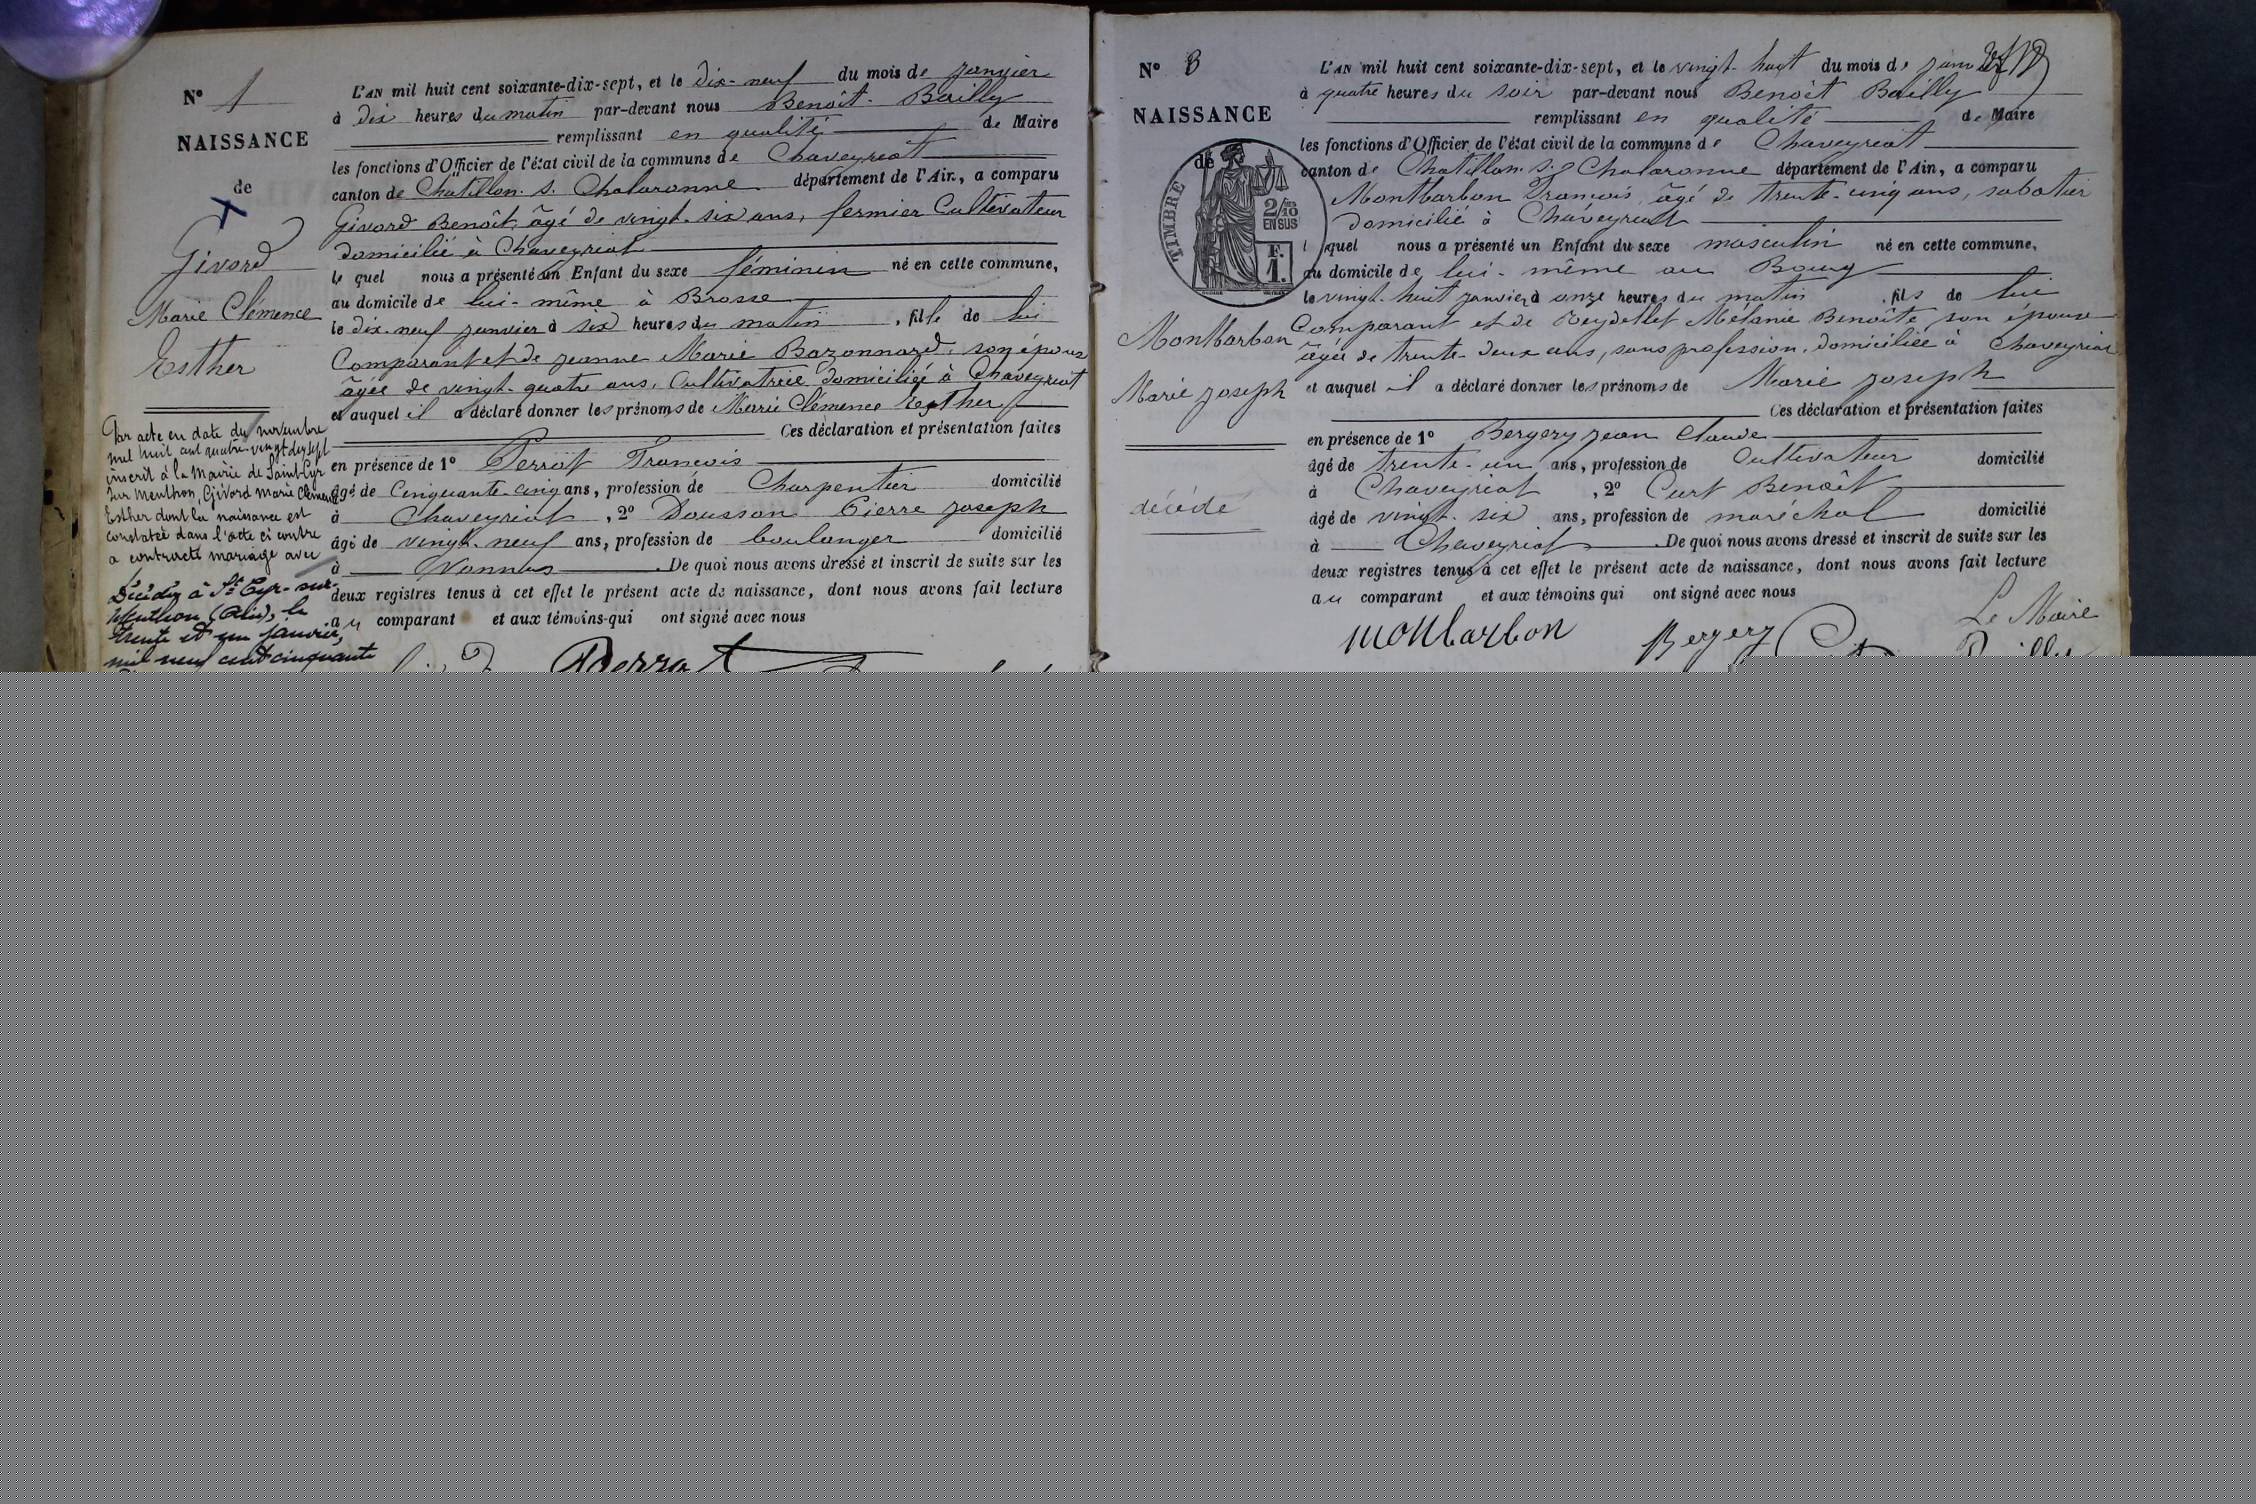 N° 1
NAISSANCE
de
Givord
Marie Clémence
Esther
Par acte en date du novembre
mil huit cent quatre-vingt dix sept
inscrit à la Mairie de Saint Cyr
sur Menthon, Givord Marie Clémence
Esther dont la naissance est
constatée dans l'acte ci contre
a contracté mariage avec
Décédée à St Cyr-sur-
Menthon (Ain), le
trente et un janvier,
mil neuf cent cinquante
L'AN mil huit cent soixante-dix-sept, et le dix-neuf du mois de janvier
à dix heures du matin par-devant nous Benoît Bailly
remplissant en qualité de Maire
les fonctions d'Officier de l'état civil de la commune de Chaveyriat
canton de Chatillon s. Chalaronne département de l'Ain, a comparu
Givord Benoît, âgé de vingt-six ans, fermier Cultivateur
domicilié à Chaveyriat
lequel nous a présenté un Enfant du sexe féminin né en cette commune,
au domicile de lui-même à Brosse
le dix-neuf janvier à six heures du matin, fille de lui
Comparant et de Jeanne Marie Bazonnard, son épouse
âgée de vingt-quatre ans, Cultivatrice domiciliée à Chaveyriat
et auquel il a déclaré donner les prénoms de Marie Clémence Esther
Ces déclaration et présentation faites
en présence de 1° Perrat François
âgé de Cinquante-cinq ans, profession de Charpentier domicilié
à Chaveyriat, 2° Dousson Pierre Joseph
âgé de vingt-neuf ans, profession de boulanger domicilié
à Vonnas. De quoi nous avons dressé et inscrit de suite sur les
deux registres tenus à cet effet le présent acte de naissance, dont nous avons fait lecture
au comparant et aux témoins qui ont signé avec nous
Perrat
N° 3
NAISSANCE
de
TIMBRE
2/10
EN SUS
1 F.
Montbarbon
Marie Joseph
décédé
L'AN mil huit cent soixante-dix-sept, et le vingt-huit du mois de janvier
à quatre heures du soir par-devant nous Benoît Bailly
remplissant en qualité de Maire
les fonctions d'Officier de l'état civil de la commune de Chaveyriat
canton de Chatillon s. Chalaronne département de l'Ain, a comparu
Montbarbon François, âgé de trente-cinq ans, sabotier
domicilié à Chaveyriat
lequel nous a présenté un Enfant du sexe masculin né en cette commune,
au domicile de lui-même au Bourg
le vingt-huit janvier à onze heures du matin, fils de lui
Comparant et de Reydellet Mélanie Benoîte son épouse
âgée de trente-deux ans, sans profession, domiciliée à Chaveyriat
et auquel il a déclaré donner les prénoms de Marie Joseph
Ces déclaration et présentation faites
en présence de 1° Bergery Jean Claude
âgé de trente-un ans, profession de Cultivateur domicilié
à Chaveyriat, 2° Curt Benoît
âgé de vingt-six ans, profession de maréchal domicilié
à Chaveyriat. De quoi nous avons dressé et inscrit de suite sur les
deux registres tenus à cet effet le présent acte de naissance, dont nous avons fait lecture
au comparant et aux témoins qui ont signé avec nous
Le Maire
Montbarbon Bergery Bailly